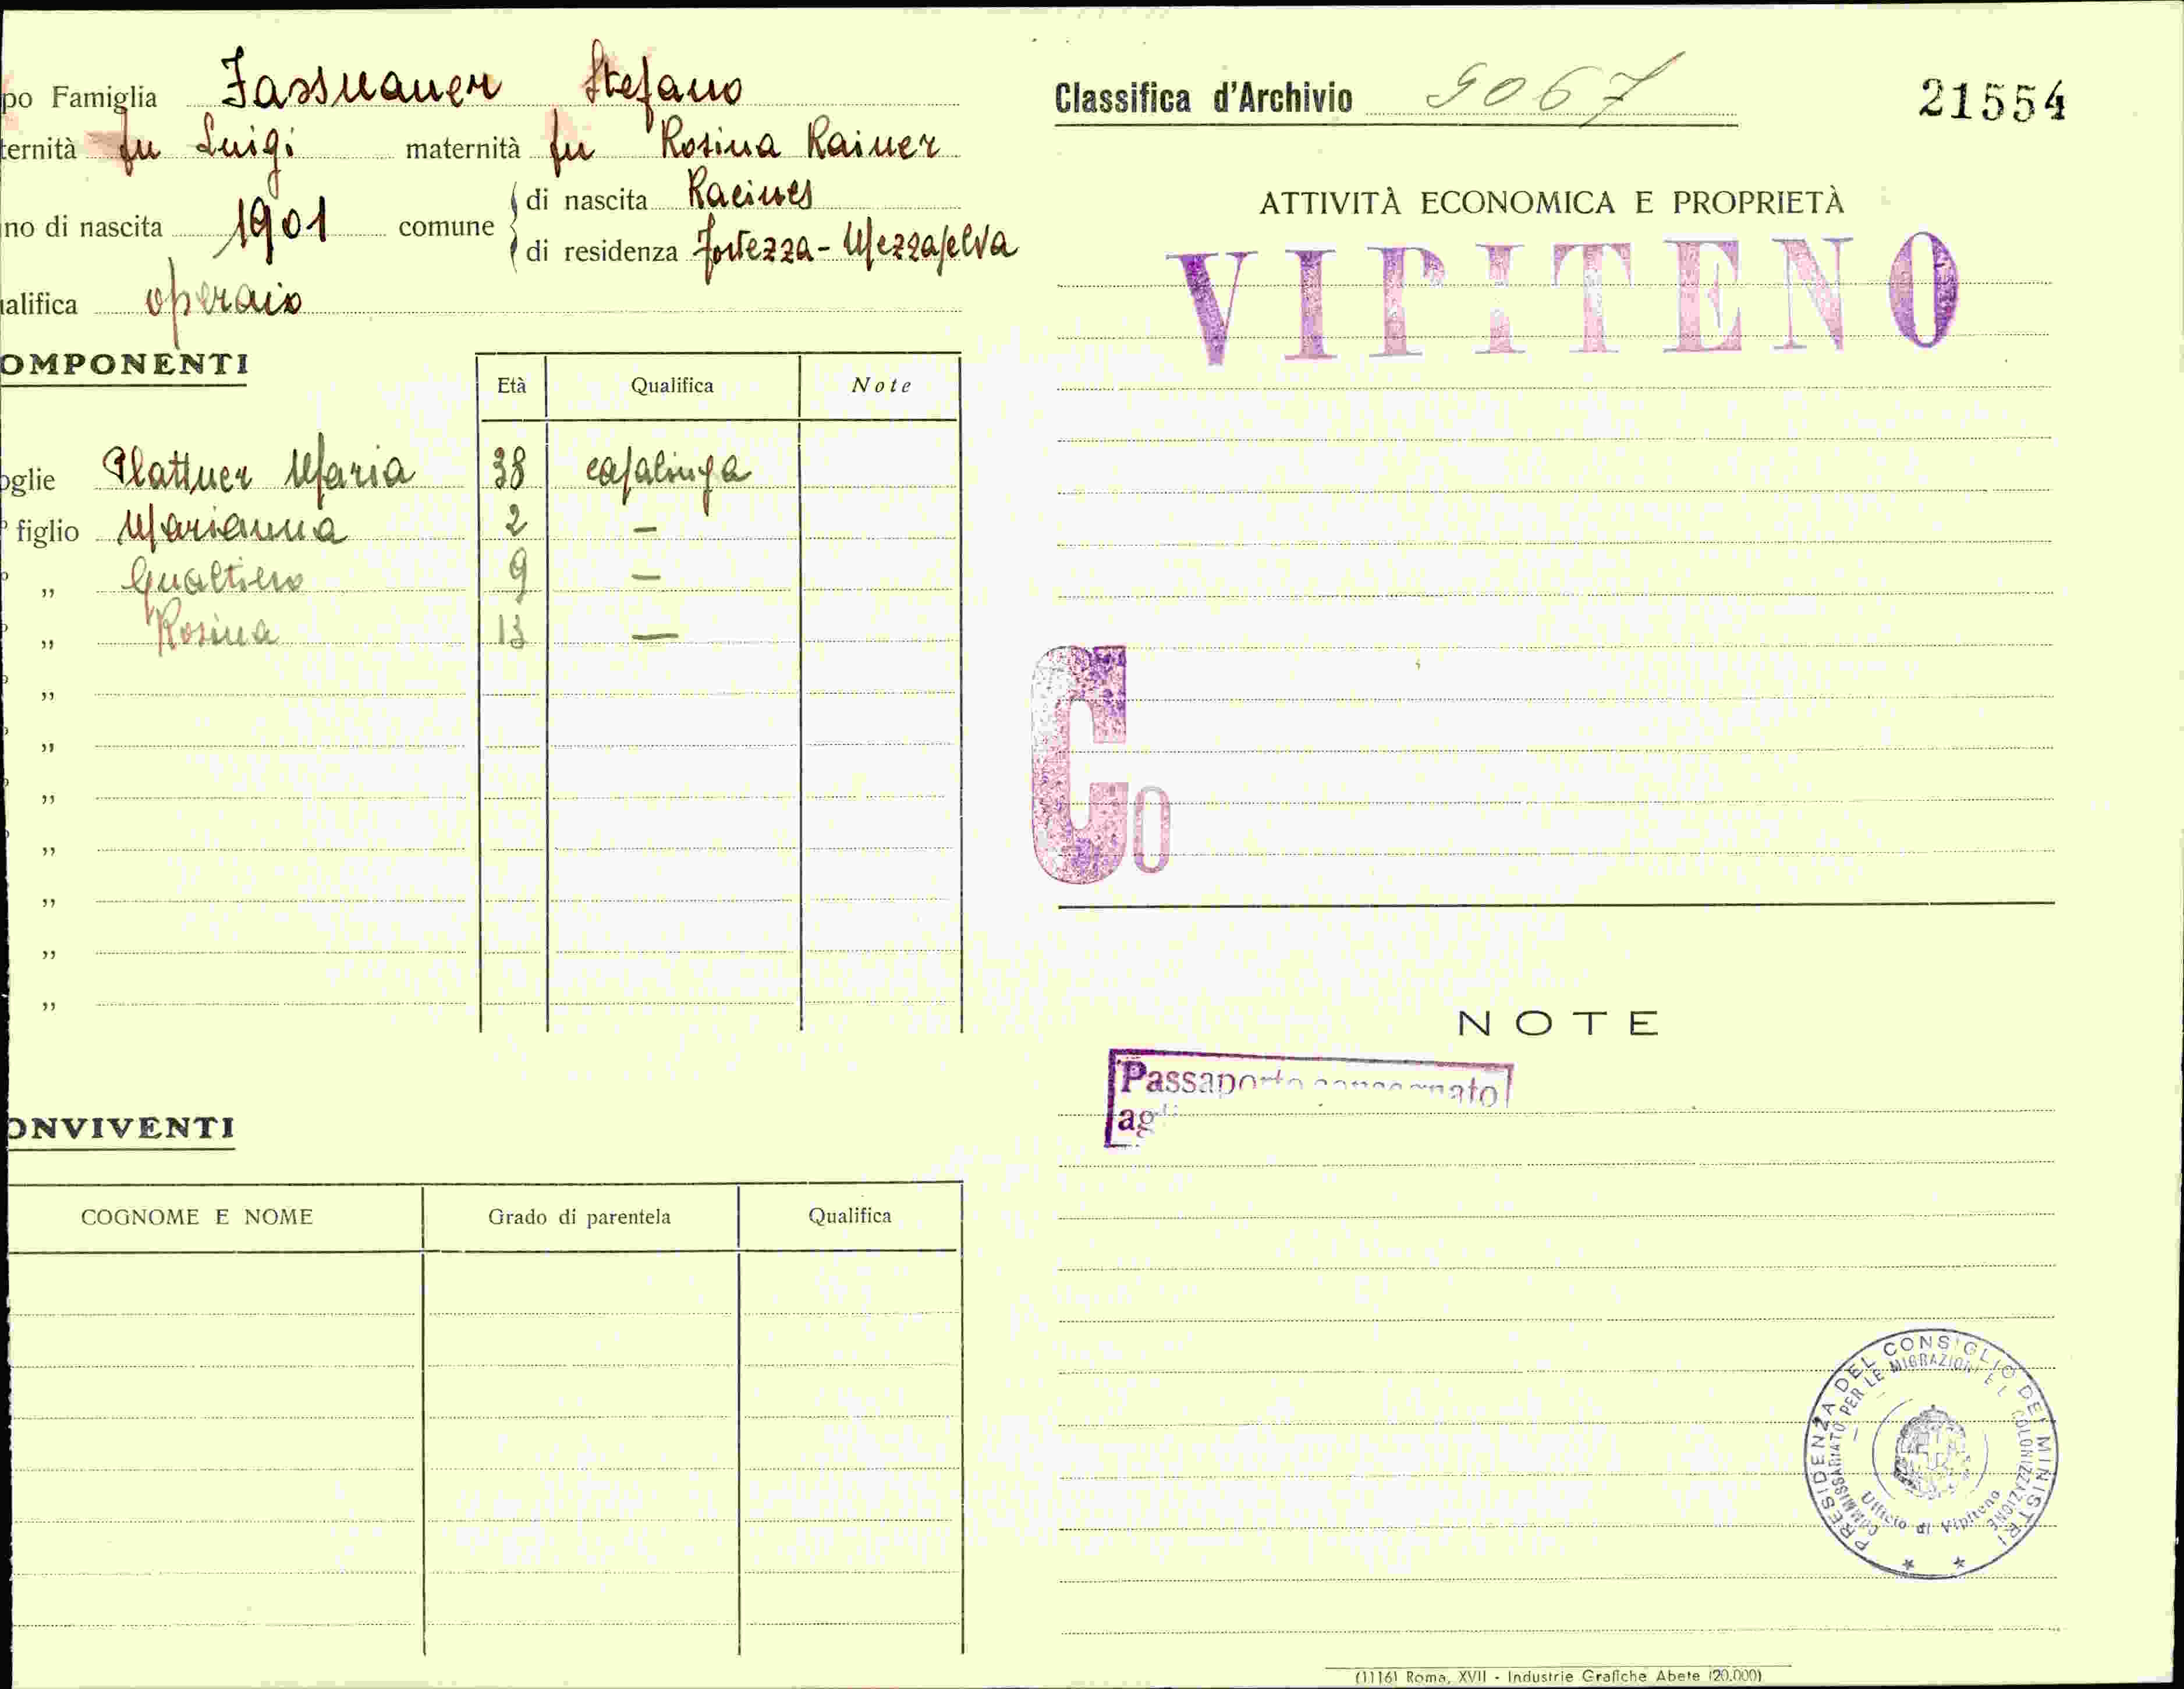 po Famiglia Fassnauer Stefano
ternità fu Luigi maternità fu Rosina Rainer
no di nascita 1901 comune di nascita Racines
di residenza Fortezza - Mezzaselva
alifica operaio
OMPONENTI
Età Qualifica Note
oglie Plattner Maria 38 casalinga
figlio Marianna 2 —
„ Gualtiero 9 —
„ Rosina 13 —
„
„
„
„
„
„
„
ONVIVENTI
COGNOME E NOME Grado di parentela Qualifica
Classifica d'Archivio 9067 21554
ATTIVITÀ ECONOMICA E PROPRIETÀ
VIPITENO
Co
NOTE
Passaporto consegnato
PRESIDENZA DEL CONSIGLIO DEI MINISTRI
COMMISSARIATO PER LE MIGRAZIONI E L COLONIZZAZIONE
Ufficio di Vipiteno
(1116) Roma, XVII - Industrie Grafiche Abete (20.000)